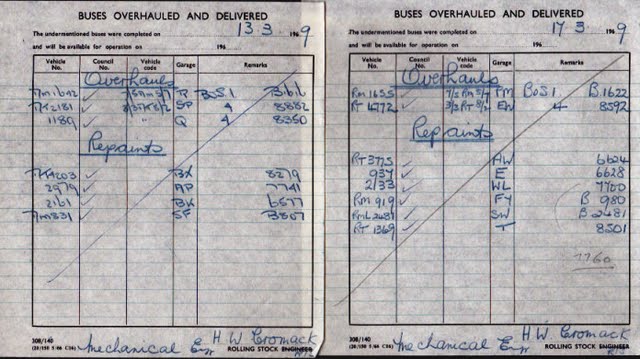 BUSES OVERHAULED AND DELIVERED
The undermentioned buses were completed on 13.3 196 9
and will be available for operation on 196
Vehicle No. Council No. Vehicle code Garage Remarks
Overhauls
1692 ✓ R BOS 1
2181 ✓ SP 4 8882
1189 ✓ " Q 4 8350
Repaints
4203 ✓ BX 8279
2979 ✓ AP 7741
2161 ✓ BK 6577
831 ✓ SF
308/140
Mechanical Engr H W Cromack
ROLLING STOCK ENGINEER
BUSES OVERHAULED AND DELIVERED
The undermentioned buses were completed on 17.3 196 9
and will be available for operation on 196
Vehicle No. Council No. Vehicle code Garage Remarks
Overhauls
RM 1655 ✓ 7/5 RM 5/7 TM BOS 1 B.1622
RT 4772 ✓ 3/3 RT 8/2 EW 4 8592
Repaints
RT 3775 ✓ AW 6624
937 ✓ E 6628
2133 ✓ WL 7700
RM 919 ✓ FY B 980
RML 2487 ✓ SW B 2481
RT 1369 ✓ T 8501
7760
308/140
Mechanical Engr H W Cromack
ROLLING STOCK ENGINEER